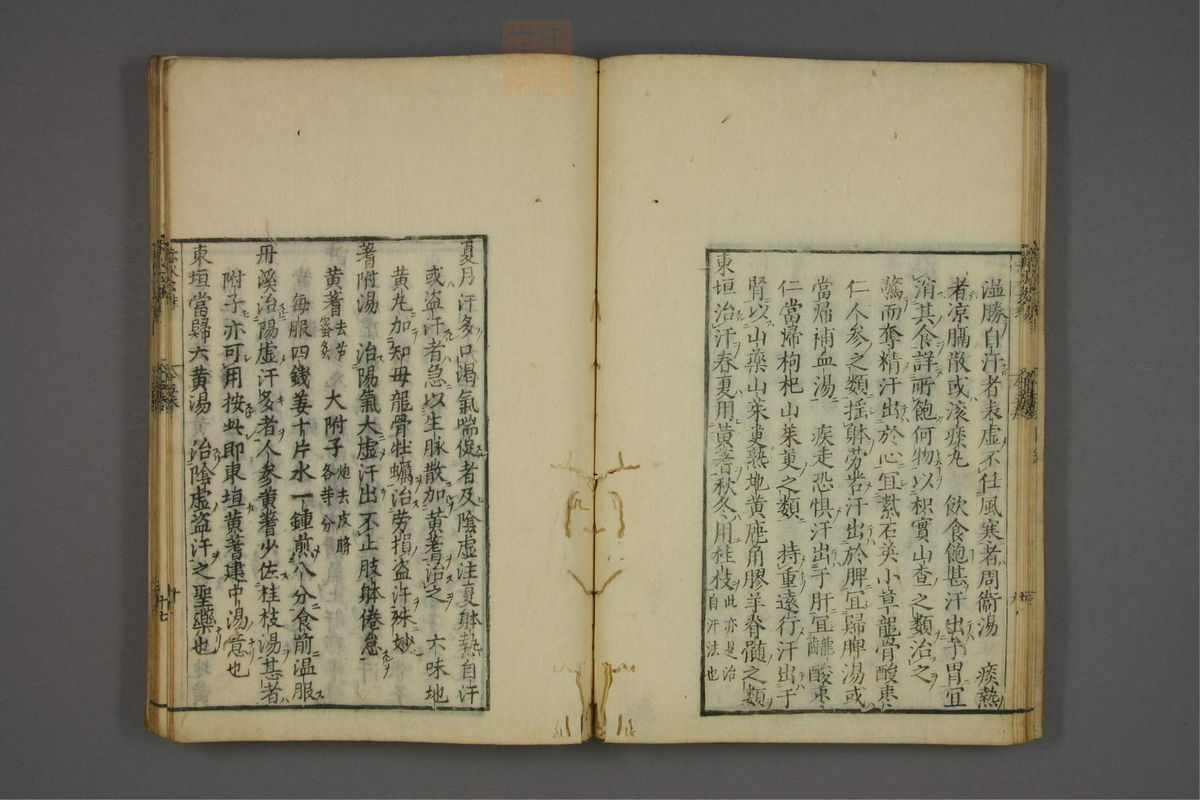 湿勝自汗者表虚不任風寒者周衞湯　痰熱
者凉膈散或滚痰丸　飲食飽甚汗出于胃冝
消其食詳所飽何物以枳實山查之類治之
驚而奪精汗出於心冝紫石英小草龍骨酸枣
仁人参之類揺躰劳苦汗出於脾冝歸脾湯或
當帰補血湯　疾走恐惧汗出于肝冝 酸枣
仁當帰枸杞山茱萸之類　持重遠行汗出于
腎以山藥山茱萸熟地黄鹿角膠羊脊髓之類
東垣治汗春夏用黄蓍秋冬用桂枝此亦是治自汗法也
夏月汗多口渴氣喘促者及陰虚注夏躰熱自汗
或盗汗者急以生脉散加黄蓍治之　六味地
黄丸加知母龍骨牡蠣治劳損盗汗殊妙
蓍附湯　治陽氣大虚汗出不止肢躰倦怠
黄蓍去芦蜜炙　大附子炮去皮臍各等分
每服四錢姜十片水一鍾煎八分食前温服
丹溪治陽虚汗多者人参黄蓍少佐桂枝湯甚者
附子亦可用按此即東垣黄蓍建中湯意也
東垣當歸六黄湯　治陰虚盗汗之聖藥也